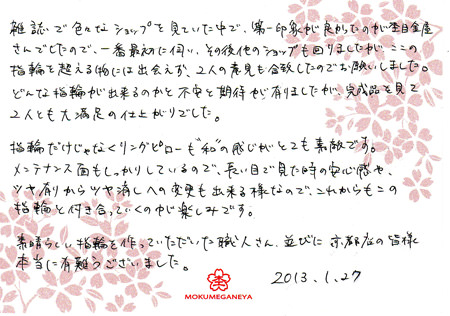 雑誌で色々なショップを見ていた中で、第一印象が良かったのが杢目金屋
さんでしたので、一番最初に伺い、その後他のショップも回りましたが、ここの
指輪を超える物には出会えず、2人の意見も合致したのでお願いしました。
どんな指輪が出来るのかと不安と期待が有りましたが、完成品を見て
2人とも大満足の仕上がりでした。
指輪だけじゃなくリングピローも"和"の感じがとても素敵です。
メンテナンス面もしっかりしているので、長い目で見た時の安心感や、
ツヤ有りからツヤ消しへの変更も出来る様なので、これからもこの
指輪と付き合っていくのが楽しみです。
素晴らしい指輪を作っていただいた職人さん、並びに京都店の皆様
本当に有難うございました。
2013.1.27
MOKUMEGANEYA